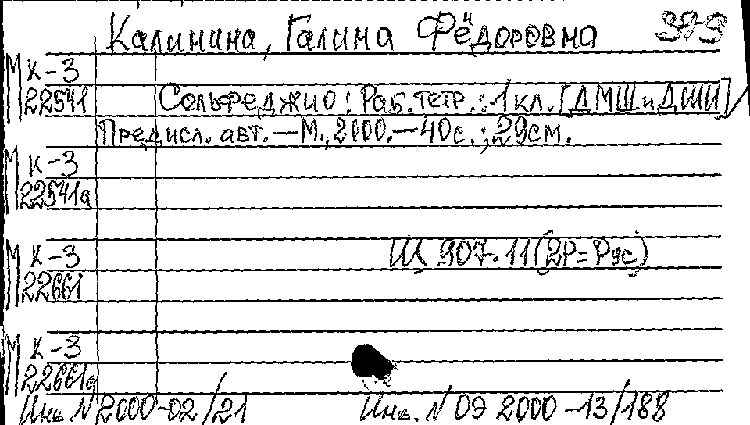 Калинина, Галина Фёдоровна 399
М К-3
22541 Сольфеджио: Раб. тетр.: 1 кл. [ДМШ и ДШИ] /
Предисл. авт. — М., 2000. — 40 с.; 29 см.
М К-3
22541а
Щ 907.11(2Р=Рус)
М К-3
22661
М К-3
22661а
Инв. N 2000-02/21 Инв. N 09 2000-13/188